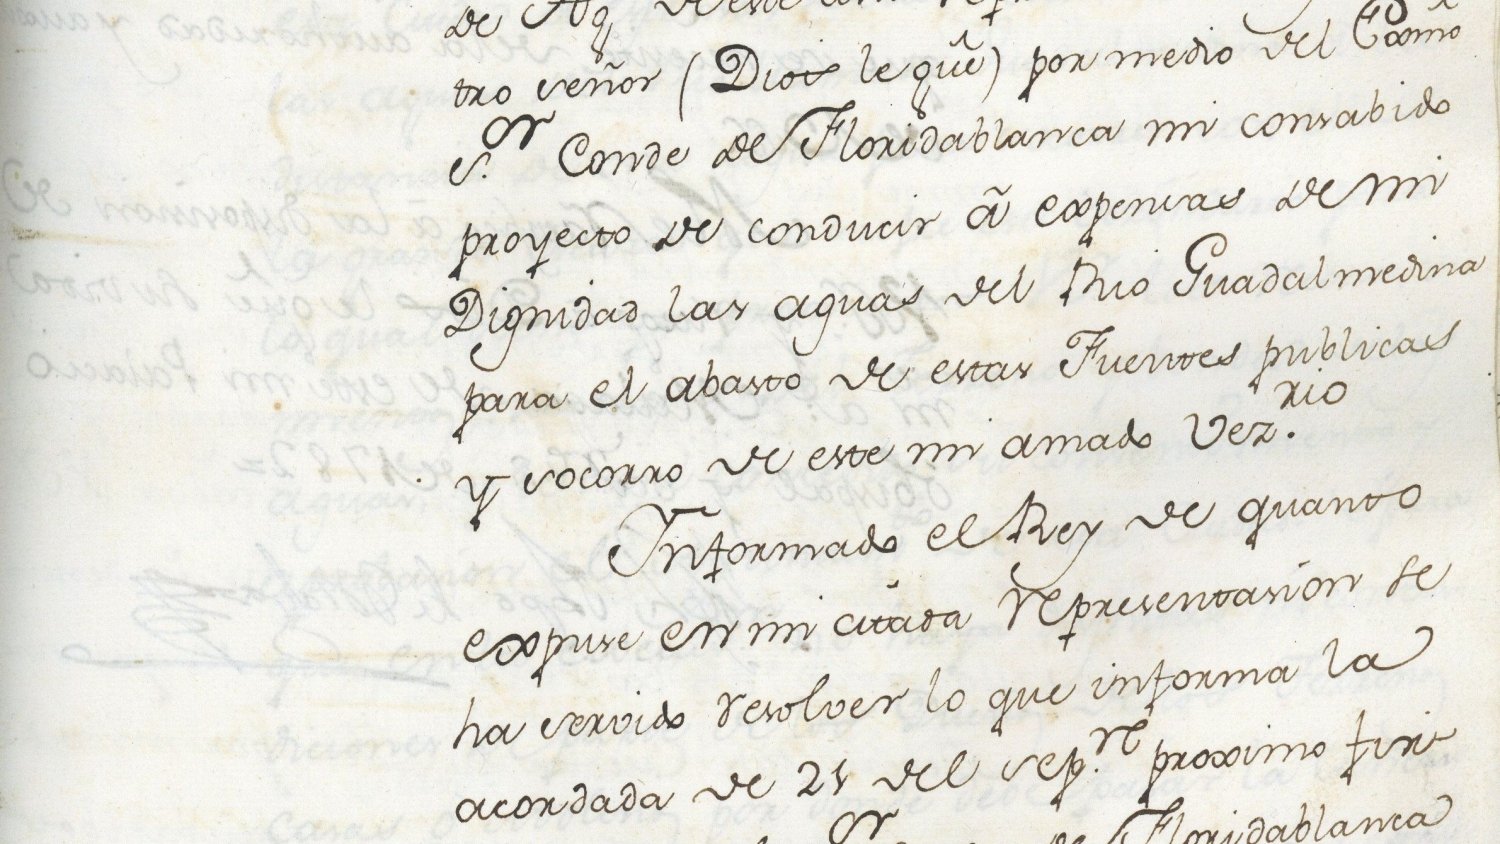 de Ag.
tro señor (Dios le gue) por medio del Exmo
S.or Conde de Floridablanca mi consabido
proyecto de conducir â expensas de mi
Dignidad las aguas del Rio Guadalmedina
para el abasto de estas Fuentes publicas
y socorro de este mi amado Vez.rio
Informado el Rey de quanto
expuse en mi citada representasion se
ha servido resolver lo que informa la
acordada de 25 del sep.re proximo fir
or de Floridablanca